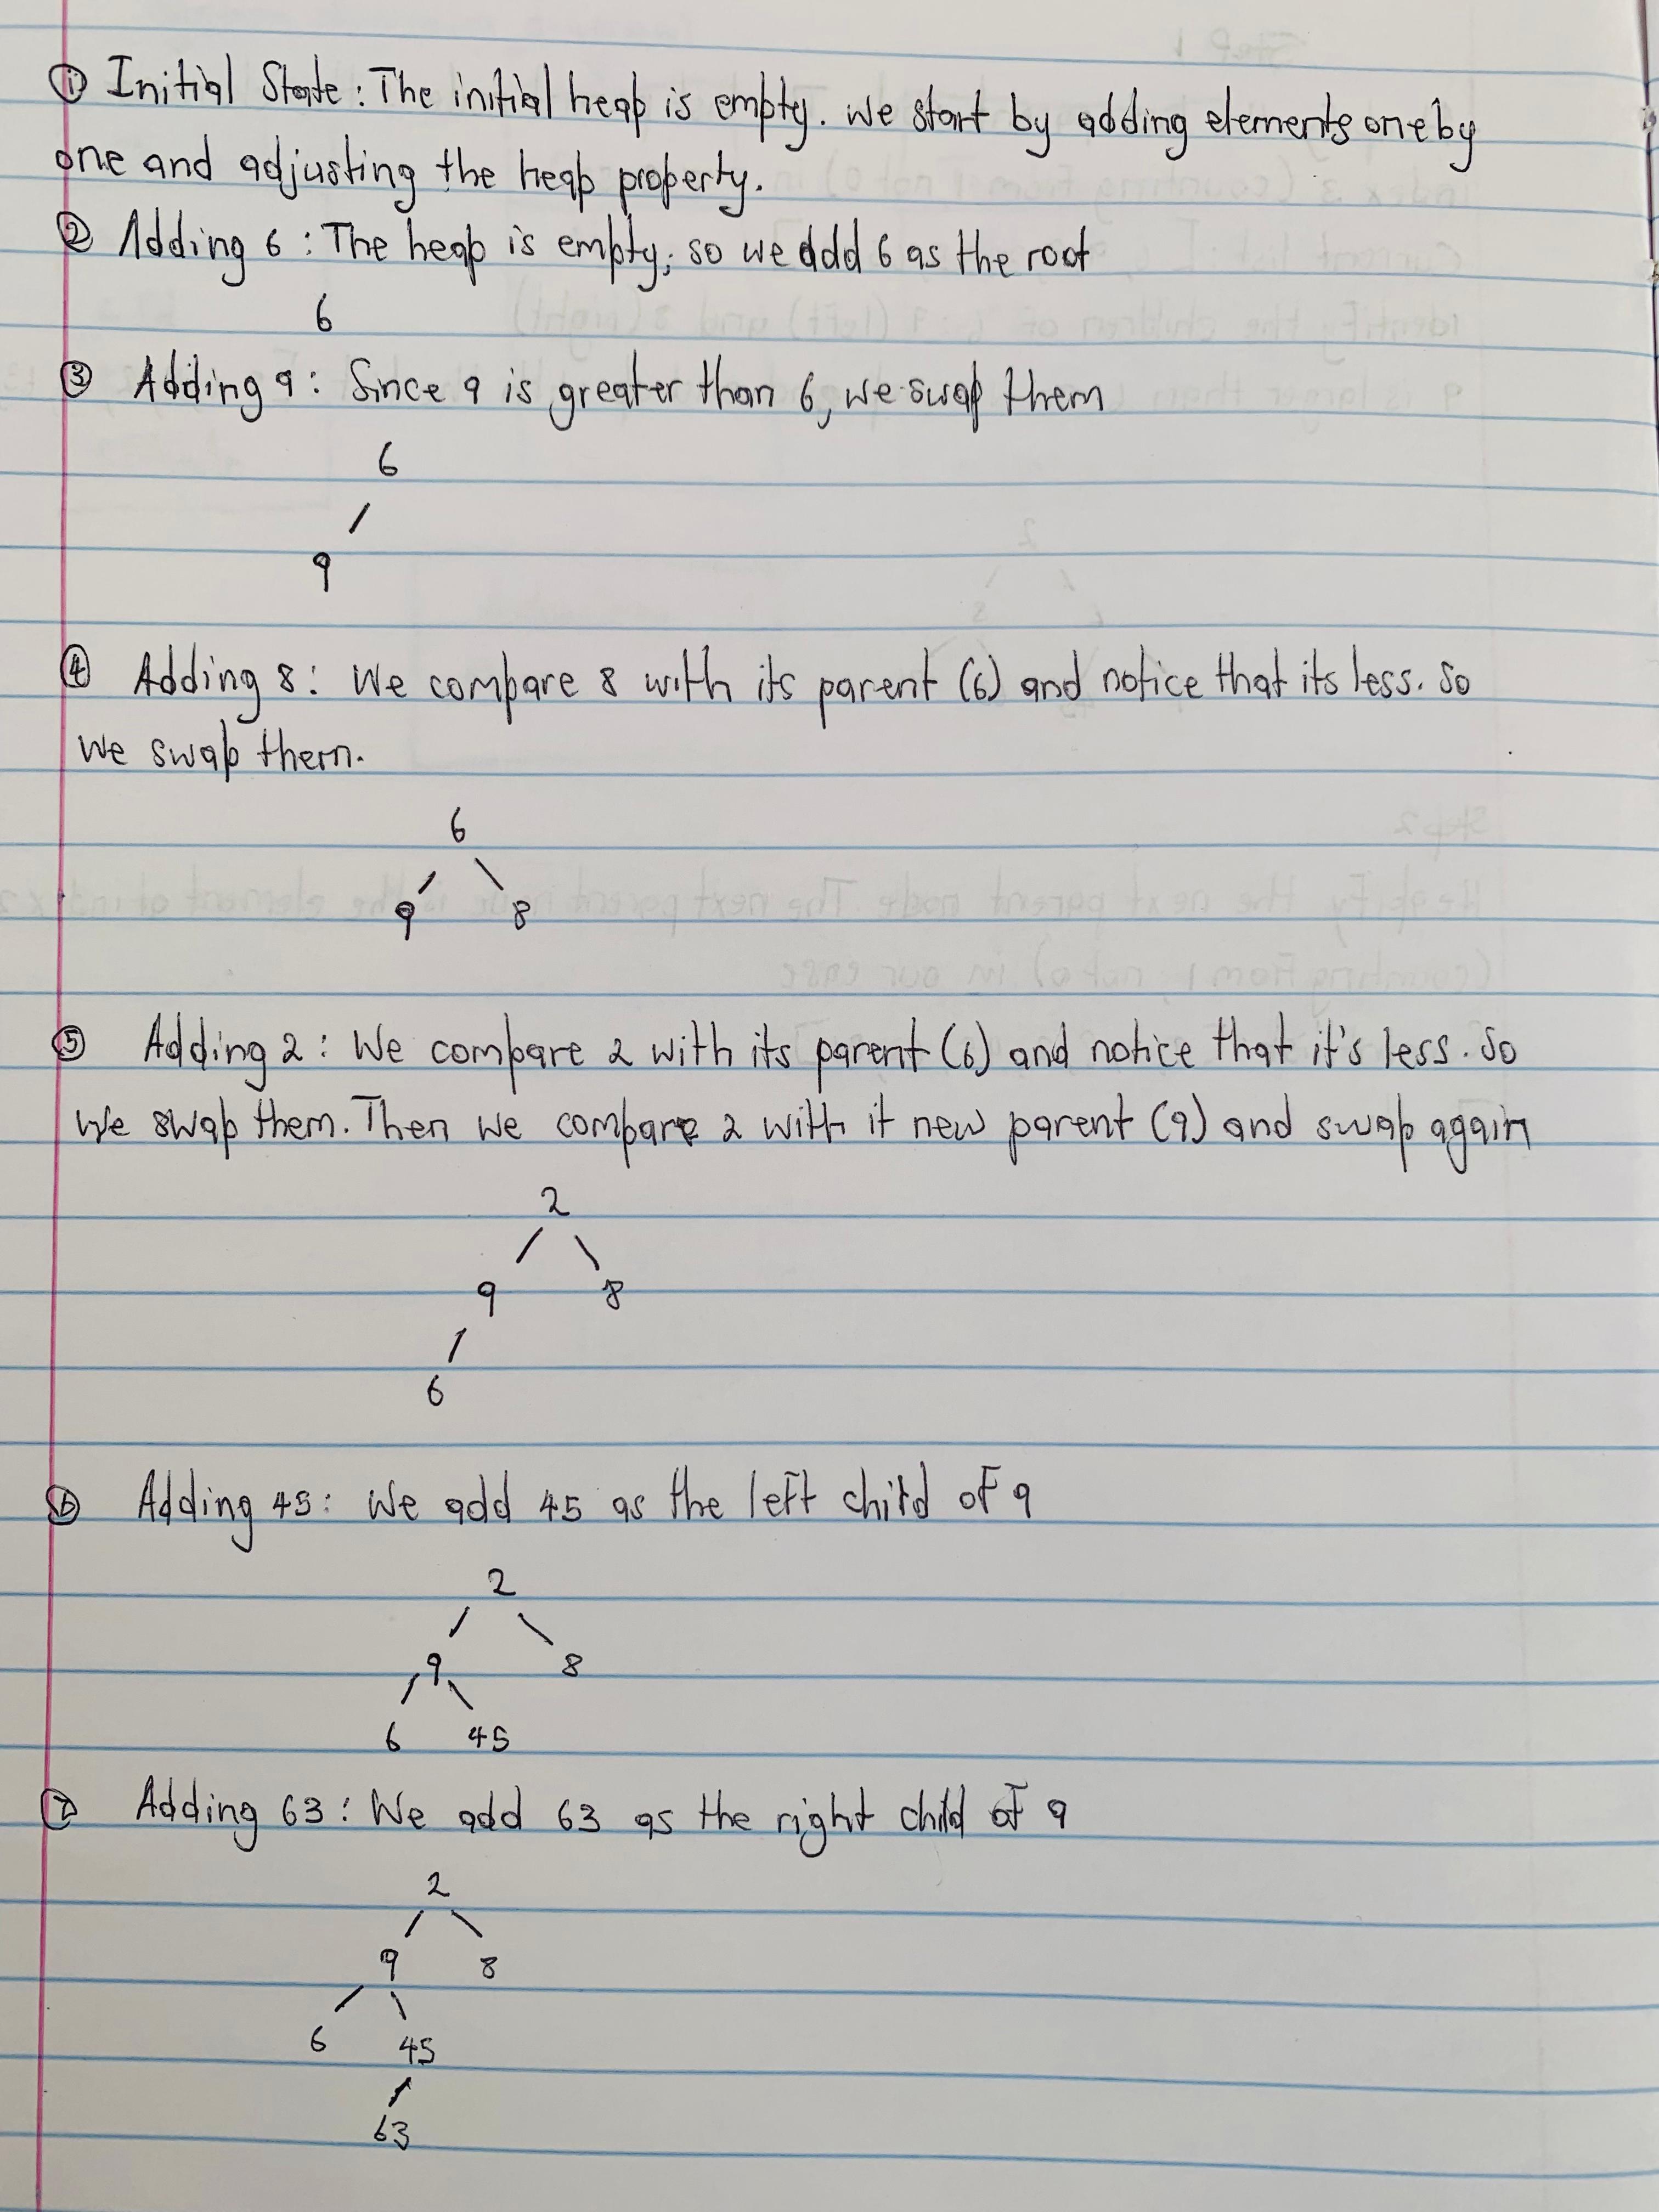 ① Initial State: The initial heap is empty. We start by adding elements one by
one and adjusting the heap property.
② Adding 6: The heap is empty, so we add 6 as the root
6
③ Adding 9: Since 9 is greater than 6, we swap them
6
9
④ Adding 8: We compare 8 with its parent (6) and notice that its less. So
we swap them.
6
9 8
⑤ Adding 2: We compare 2 with its parent (6) and notice that it's less. So
we swap them. Then we compare 2 with it new parent (9) and swap again
2
9 8
6
⑥ Adding 45: We add 45 as the left child of 9
2
9 8
6 45
⑦ Adding 63: We add 63 as the right child of 9
2
9 8
6 45
63